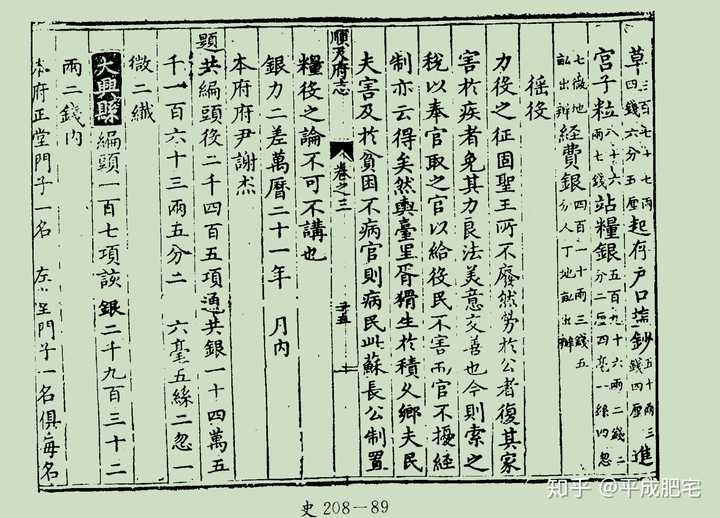 草三百七十七兩四錢六分五厘起存戶口塩鈔五十兩三錢四厘進
宮子粒八十六兩七錢站糧銀五百九十六兩二錢二分二厘四毫一絲四忽
七徵地畝出辦經費銀四百一十兩三錢五分人丁地畝出辦
徭役
力役之征固聖王所不廢然勞於公者復其家
害於疾者免其力良法美意交善也今則索之
稅以奉官取之官以給役民不害而官不擾經
制亦云得矣然輿臺里胥猾生於積乆鄉夫民
夫害及於貧困不病官則病民此蘇長公制置
順天府志 卷之三
糧役之論不可不講也
銀力二差萬曆二十一年 月內
本府府尹謝杰
題共編頭役二千四百五項通共銀一十四萬五
千一百六十三兩五分二 六毫五絲二忽一
微二纖
大興縣編頭一百七項該銀二千九百三十二
兩二錢內
本府正堂門子一名 左堂門子一名俱每名
史 208—89
知乎 @平成肥宅